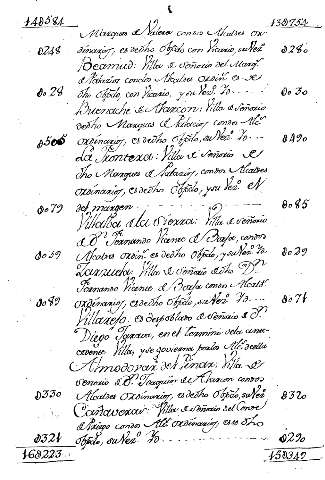 148581 138752
Marques de Valero con dos Alcaldes or-
0248 dinarios, es de dho Obpdo con Vicario, su Vez.º 0280
Beamud: Villa de Señorio del Marq.s
de Palacios con dos Alcaldes ordin.s es de
0028 dho Obpdo, con Vicario, y su Vez.º Yo 0030
Buenache de Alarcon: Villa de Señorio
de dho Marques de Palacios, con dos Alc.s
0505 ordinarios, es de dho Obpdo, su Vez.º Yo 0490
La frontera: Villa de Señorio de
dho Marques de Palacios, con dos Alcaldes
ordinarios, es de dho Obpdo, y su Vez.º el
0079 del margen 0085
Villalba de la Sierra: Villa de Señorio
de D.n Fernando Vicente de Borja, con dos
0039 Alcaldes ordin.s es de dho Obpdo, y su Vez.º Yo 0029
Zarzuela: Villa de Señorio de dho D.n
Fernando Vicente de Borja con dos Alcald.s
0089 ordinarios, es de dho Obpdo, su Vez.º Yo 0071
Villarejo: es despoblado de Señorio de D.n
Diego en el termino de la
Villa, y se govierna por los Alc.s de ella
Almodovar del Pinar: Villa de
Señorio de D.n Joaquin de Alarcon con dos
0330 Alcaldes ordinarios, es de dho Obpdo, su Vez.º 0320
Cañaveras: Villa de Señorio del Conde
de Priego con dos Alc.s ordinarios, es de dho
0321 Obpdo, su Vez.º Yo 0290
168223 158342